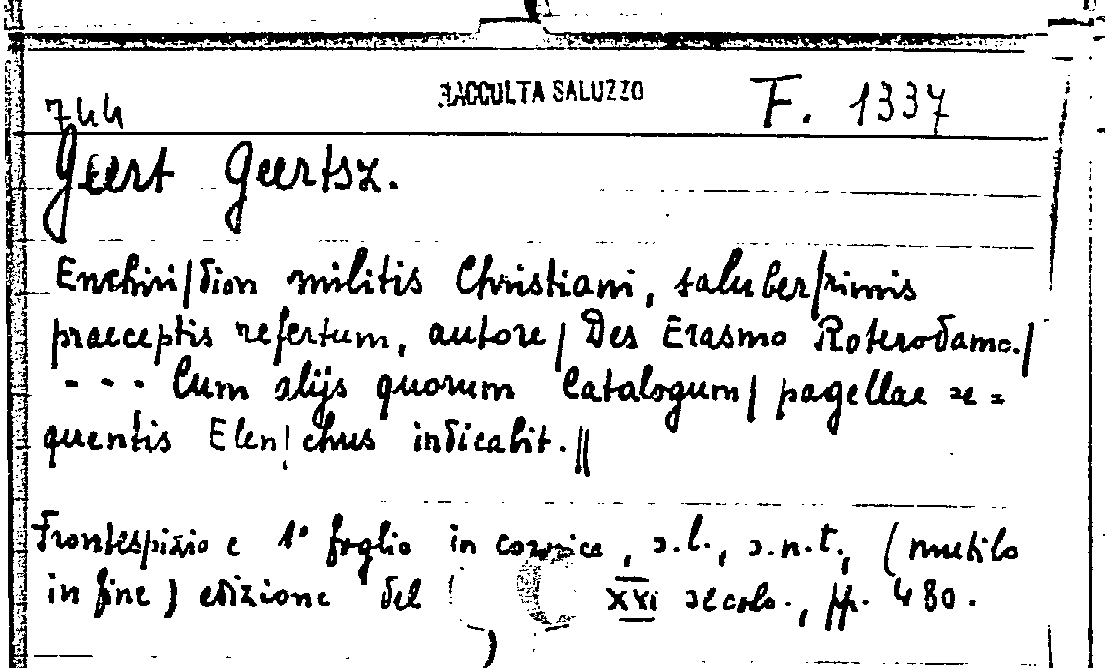 RACCOLTA SALUZZO
F. 1337
744
Geert Geertsz.
Enchiri/dion militis Christiani, saluber/rimis
praeceptis refertum, autore/ Des Erasmo Roterodamo./
- - - Cum alijs quorum Catalogum/ pagellae se=
quentis Elen/chus indicabit.||
Frontespizio e 1° foglio in cornice, s.l., s.n.t., (mutilo
in fine) edizione del XVI secolo., pp. 480.